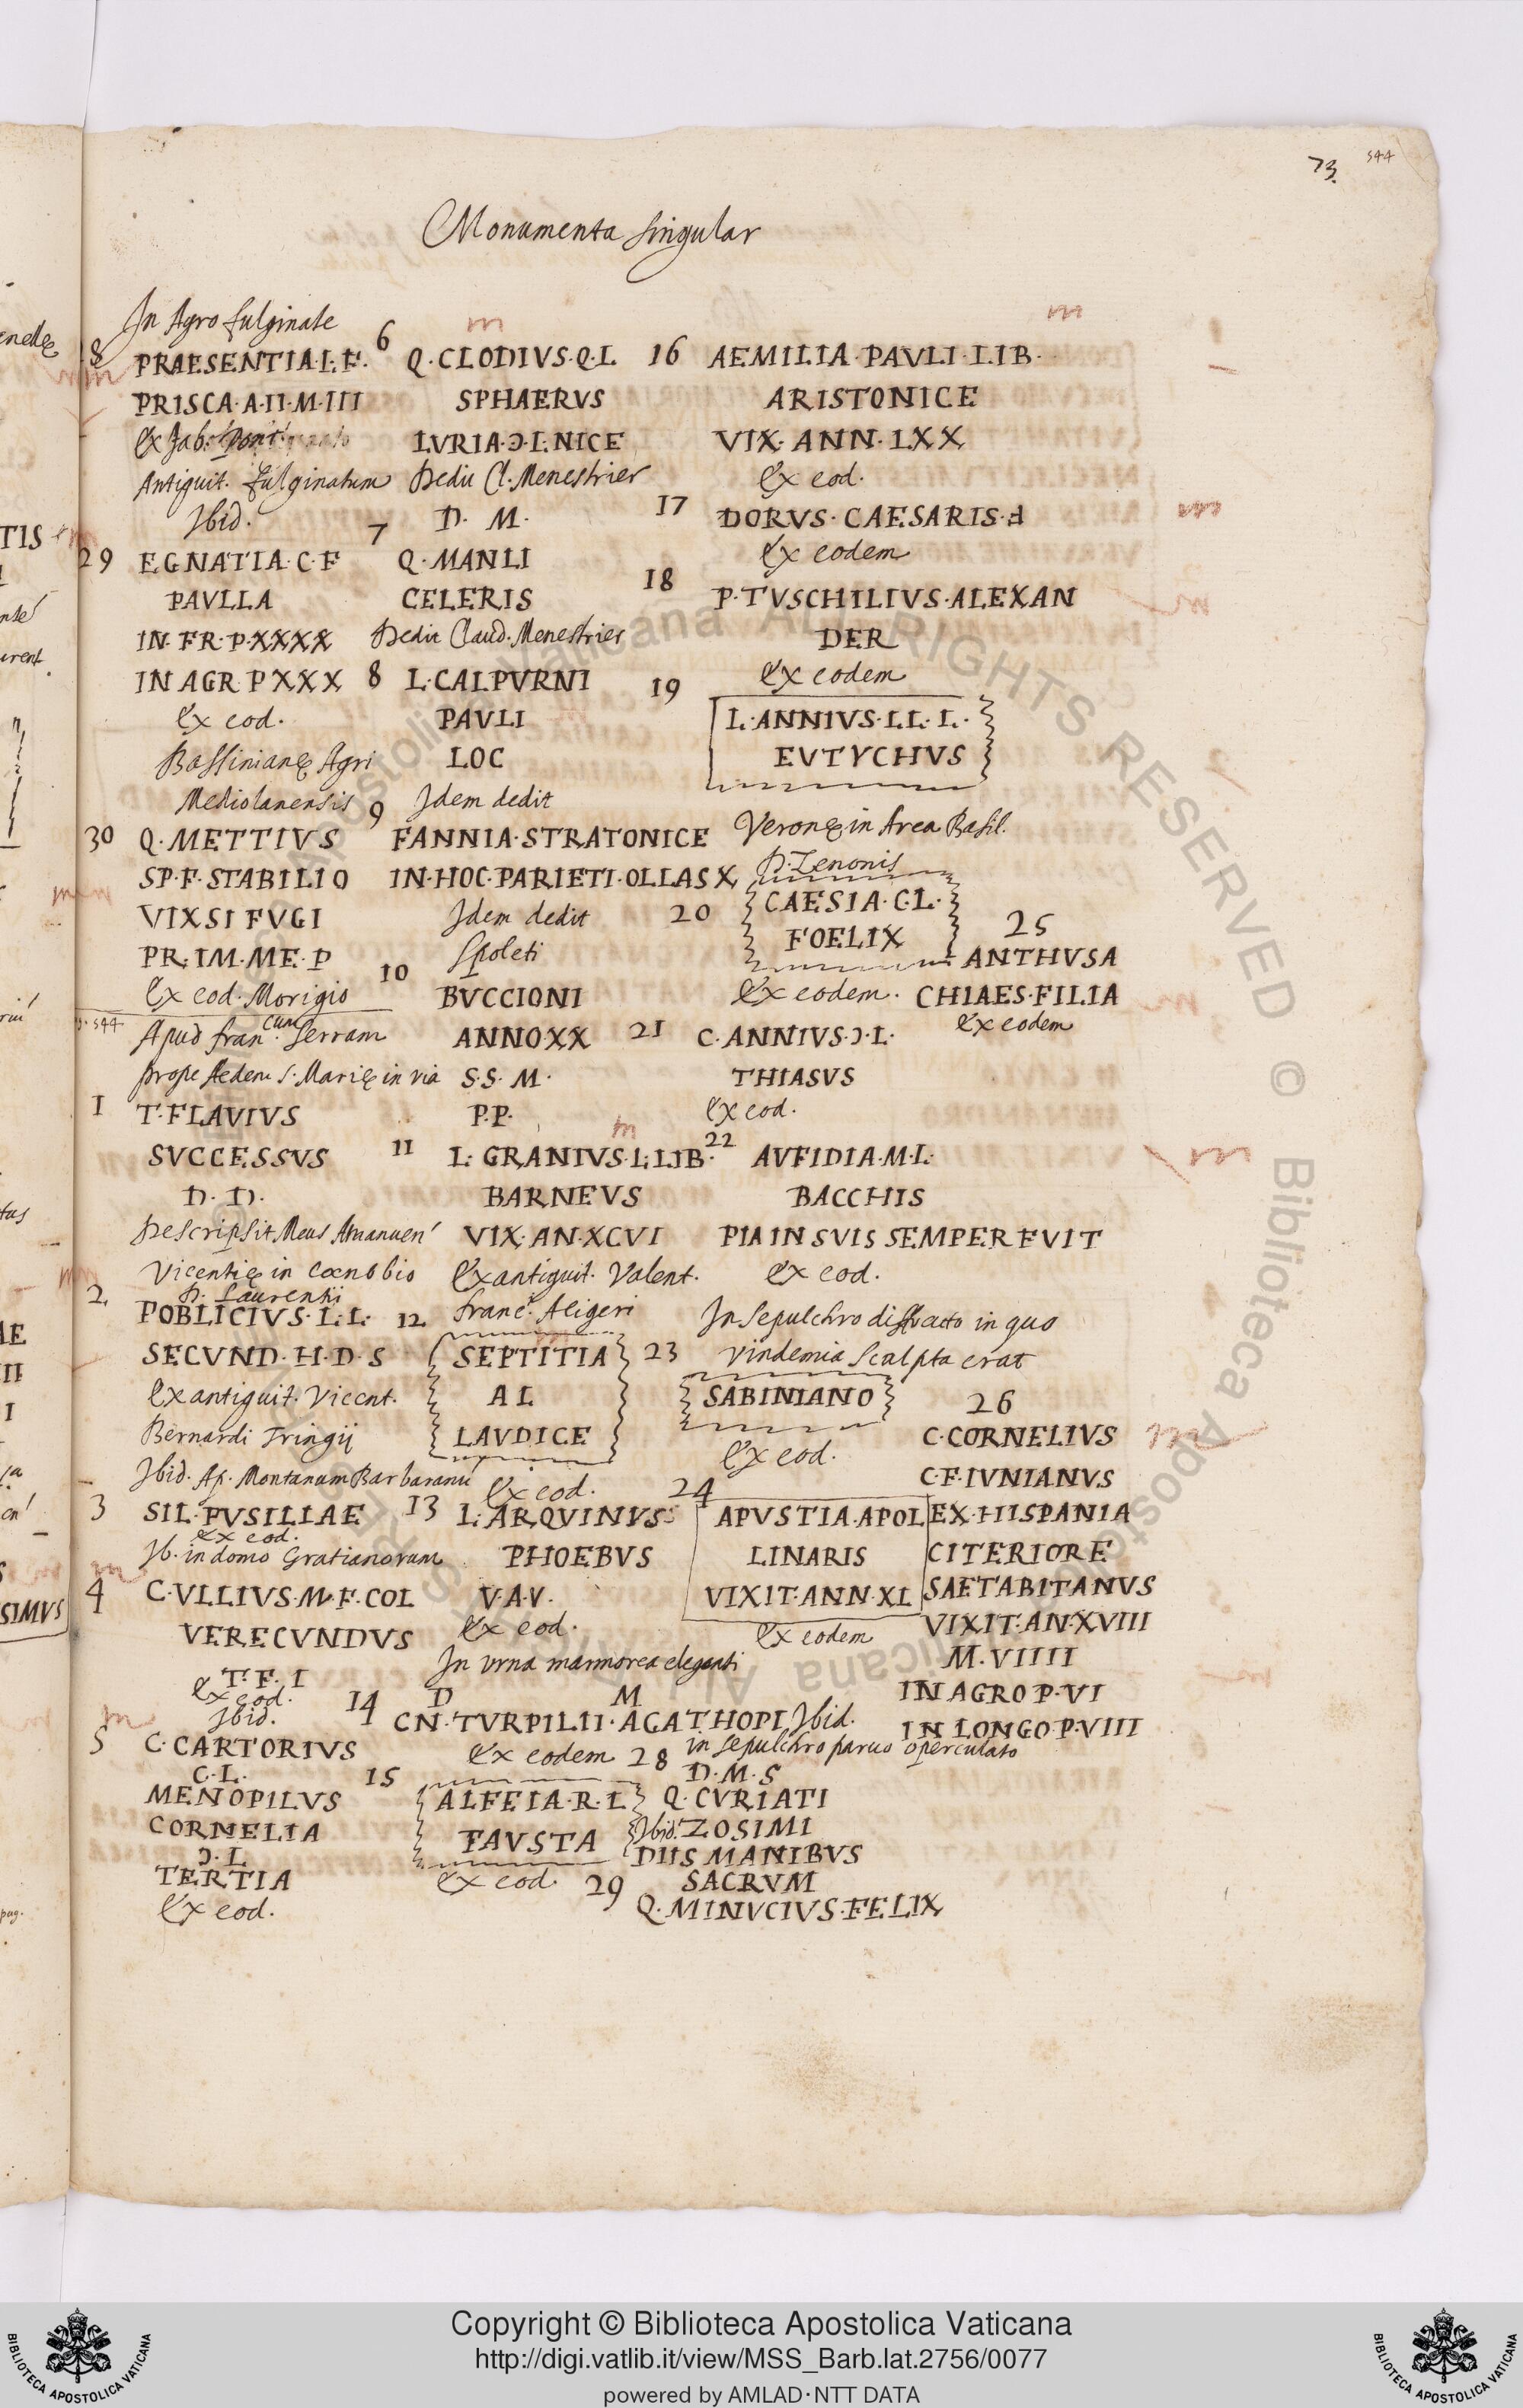 73.
544
Monumenta singular
In Agro fulginate
8
PRAESENTIA·L·F·
PRISCA·A·II·M·III
Antiquit. fulginatum
Ibid.
29
EGNATIA·C·F
PAVLLA
IN·FR·P·XXXX
IN AGR P XXX
Ex eod.
Bassinianę Agri
Mediolanensis
30
Q·METTIVS
SP·F·STABILIO
VIXSI FVGI
PR·IM·ME·P
Ex eod. Morigio
544
Apud fran.cum Serram
prope Aedem S. Marię in via
1
T·FLAVIVS
SVCCESSVS
D. D.
Descripsit Meus Amanuen'
Vicentię in cœnobio
D. Laurentii
2
POBLICIVS·L·L·
SECVND·H·D·S
Ex antiquit. Vicent.
Bernardi Tringij
Ibid. Ap. Montanum Barbaranu
3
SIL·PVSILLAE
Ex eod.
Ib. in domo Gratianorum
4
C·VLLIVS·M·F·COL
VERECVNDVS
T·F·I
Ex eod.
Ibid.
5
C·CARTORIVS
C·L·
MENOPILVS
CORNELIA
Ɔ·L
TERTIA
Ex eod.
6
Q·CLODIVS·Q·L
SPHAERVS
LVRIA·Ɔ·L·NICE
Dedit Cl. Menestrier
7
D. M.
Q·MANLI
CELERIS
Dedit Claud. Menestrier
8
L·CALPVRNI
PAVLI
LOC
Idem dedit
9
FANNIA·STRATONICE
IN·HOC·PARIETI·OLLAS X
Idem dedit
Spoleti
10
BVCCIONI
ANNO XX
S·S·M·
P·P·
11
L·GRANIVS·L·LIB·
BARNEVS
VIX·AN·XCVI
Ex antiquit. Valent.
franc. Aligeri
12
SEPTITIA
AL
LAVDICE
Ex eod.
13
L·ARQVINVS
PHOEBVS
V·A·V·
Ex eod.
In vrna marmorea eleganti
14
D M
CN·TVRPILII·AGATHOPI
Ex eodem
15
ALFEIA·R·L
FAVSTA
Ex eod.
16
AEMILIA·PAVLI·LIB·
ARISTONICE
VIX·ANN·LXX
Ex eod.
17
DORVS·CAESARIS·Ⅎ
Ex eodem
18
P·TVSCHILIVS·ALEXAN
DER
Ex eodem
19
L·ANNIVS·LL·L·
EVTYCHVS
Veronę in Area Basil.
D. Zenonis
20
CAESIA·C·L·
FOELIX
Ex eodem.
21
C·ANNIVS·Ɔ·L·
THIASVS
Ex eod.
22
AVFIDIA·M·L·
BACCHIS
PIA IN SVIS SEMPER FVIT
Ex eod.
In sepulchro disfracto in quo
vindemia scalpta erat
23
SABINIANO
Ex eod.
24
APVSTIA·APOL
LINARIS
VIXIT·ANN·XL
Ex eodem
25
ANTHVSA
CHIAES·FILIA
Ex eodem
26
C·CORNELIVS
C·F·IVNIANVS
EX·HISPANIA
CITERIORE
SAETABITANVS
VIXIT·AN·XVIII
M·VIIII
IN AGRO P·VI
IN LONGO P·VIII
Ibid.
in sepulchro paruo operculato
28
D·M·S
Q·CVRIATI
ZOSIMI
Ibid.
29
DIIS MANIBVS
SACRVM
Q·MINVCIVS·FELIX
Copyright © Biblioteca Apostolica Vaticana
http://digi.vatlib.it/view/MSS_Barb.lat.2756/0077
powered by AMLAD·NTT DATA
BIBLIOTECA APOSTOLICA VATICANA
BIBLIOTECA APOSTOLICA VATICANA